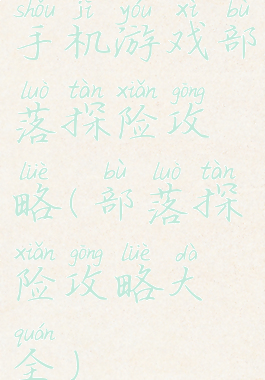 shǒu jī yóu xì bù
手机游戏部
luò tàn xiǎn gōng
落探险攻
lüè bù luò tàn
略(部落探
xiǎn gōng lüè dà
险攻略大
quán
全)